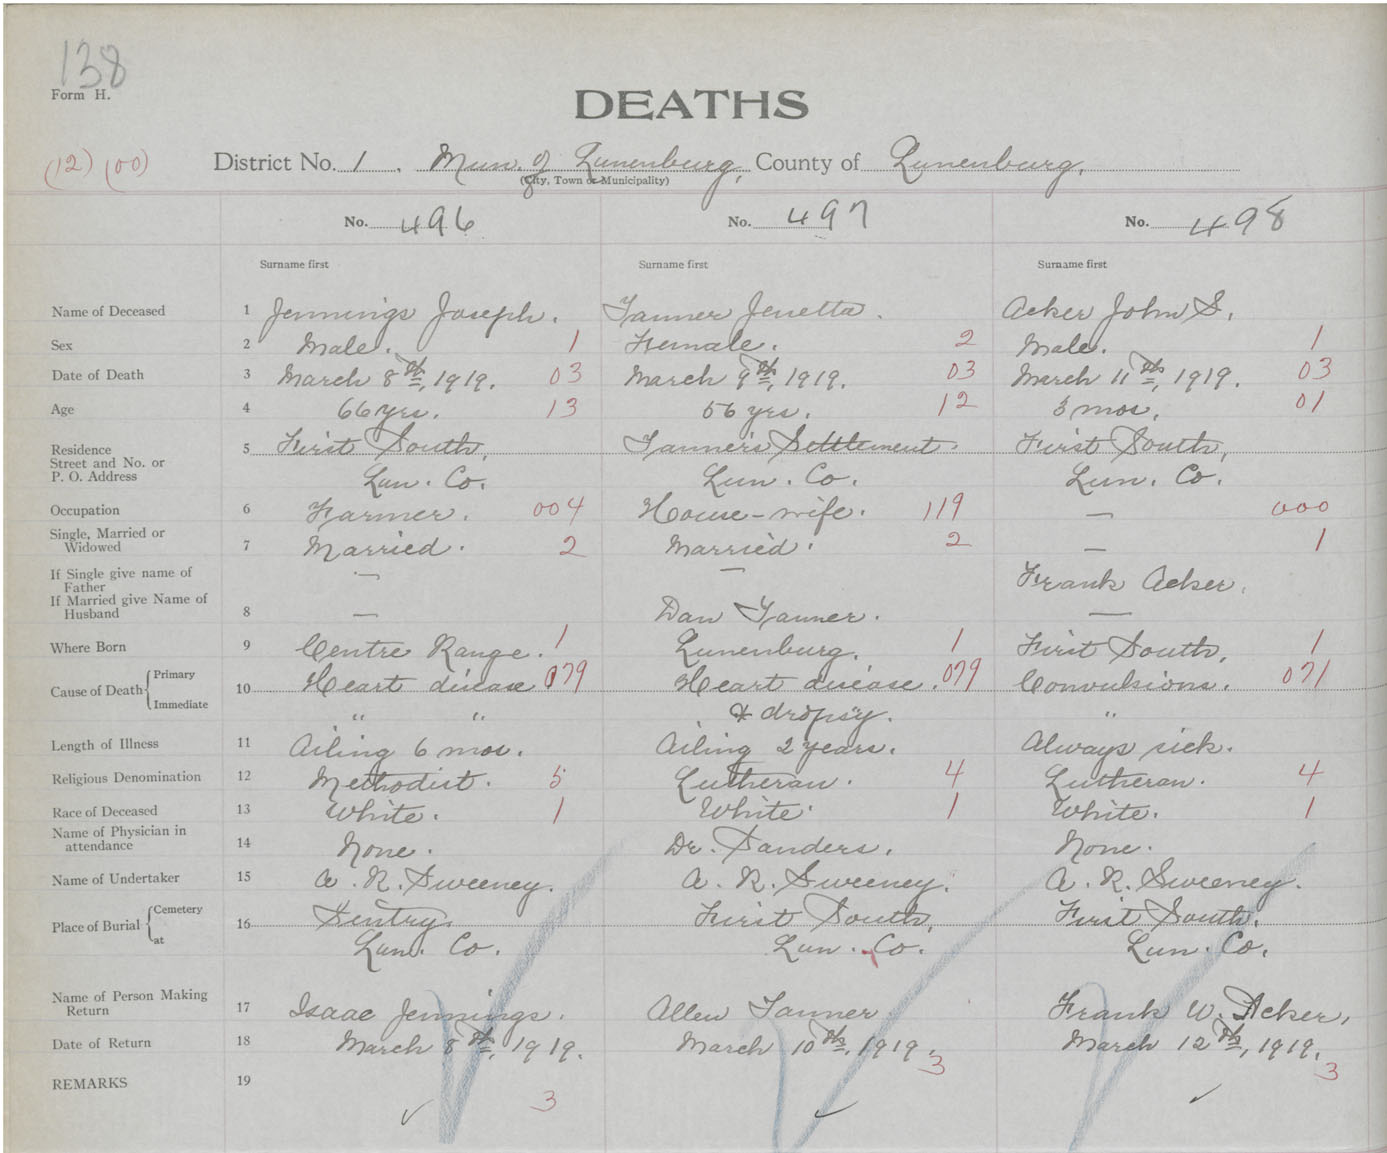 138
Form H.
DEATHS
(12) (00) District No. 1. Mun. of Lunenburg, County of Lunenburg,
(City, Town or Municipality)
No. 496 No. 497 No. 498
Surname first Surname first Surname first
Name of Deceased 1 Jennings Joseph. Tanner Jenetta. Acker John S.
Sex 2 Male. 1 Female. 2 Male. 1
Date of Death 3 March 8th, 1919. 03 March 9th, 1919. 03 March 11th, 1919. 03
Age 4 66 yrs. 13 56 yrs. 12 3 mos. 01
Residence 5 First South, Tanner's Settlement. First South,
Street and No. or
P. O. Address Lun. Co. Lun. Co. Lun. Co.
Occupation 6 Farmer. 004 House-wife. 119 — 000
Single, Married or
Widowed 7 Married. 2 Married. 2 — 1
If Single give name of
Father — — Frank Acker.
If Married give Name of
Husband 8 — Dan Tanner. —
Where Born 9 Centre Range. 1 Lunenburg. 1 First South, 1
Cause of Death Primary 10 Heart disease 079 Heart disease. 079 Convulsions. 071
Immediate " " & dropsy. "
Length of Illness 11 Ailing 6 mos. Ailing 2 years. Always sick.
Religious Denomination 12 Methodist. 5 Lutheran. 4 Lutheran. 4
Race of Deceased 13 White. 1 White. 1 White. 1
Name of Physician in
attendance 14 None. Dr. Sanders. None.
Name of Undertaker 15 A. R. Sweeney. A. R. Sweeney. A. R. Sweeney.
Place of Burial Cemetery 16 Sentry, First South, First South,
at Lun. Co. Lun. Co. Lun. Co.
Name of Person Making
Return 17 Isaac Jennings. Allen Tanner Frank W. Acker,
Date of Return 18 March 8th, 1919. March 10th, 1919. 3 March 12th, 1919. 3
REMARKS 19 3